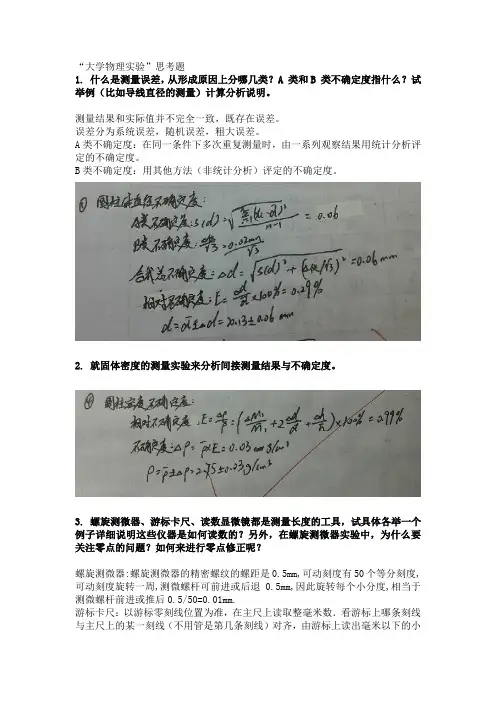 “大学物理实验”思考题
1. 什么是测量误差，从形成原因上分哪几类？A 类和 B 类不确定度指什么？试
举例（比如导线直径的测量）计算分析说明。
测量结果和实际值并不完全一致，既存在误差。
误差分为系统误差，随机误差，粗大误差。
A类不确定度：在同一条件下多次重复测量时，由一系列观察结果用统计分析评
定的不确定度。
B类不确定度：用其他方法（非统计分析）评定的不确定度。
圆柱体直径不确定度：
A类不确定度：s(d)=√(Σ(di-d̄)²/(n-1)) = 0.06
B类不确定度：/√3=0.02mm/√3
合成总不确定度：Δd=√(s(d)²+(Δ仪/√3)²)=0.06mm
相对不确定度：E=Δd/d̄×100%=0.29%
d=d̄±Δd=20.13±0.06 mm
2. 就固体密度的测量实验来分析间接测量结果与不确定度。
圆柱密度不确定度：
相对不确定度：E=Δρ/ρ=(ΔM₁/M₁+2Δd/d+Δh/h)×100%=0.99%
不确定度：Δρ=ρ̄×E=0.03 g/cm³
ρ=ρ̄±Δρ=2.75±0.03g/cm³
3. 螺旋测微器、游标卡尺、读数显微镜都是测量长度的工具，试具体各举一个
例子详细说明这些仪器是如何读数的？另外，在螺旋测微器实验中，为什么要
关注零点的问题？如何来进行零点修正呢？
螺旋测微器:螺旋测微器的精密螺纹的螺距是0.5mm,可动刻度有50个等分刻度,
可动刻度旋转一周,测微螺杆可前进或后退 0.5mm,因此旋转每个小分度,相当于
测微螺杆前进或推后0.5/50=0.01mm.
游标卡尺：以游标零刻线位置为准，在主尺上读取整毫米数．看游标上哪条刻线
与主尺上的某一刻线（不用管是第几条刻线）对齐，由游标上读出毫米以下的小